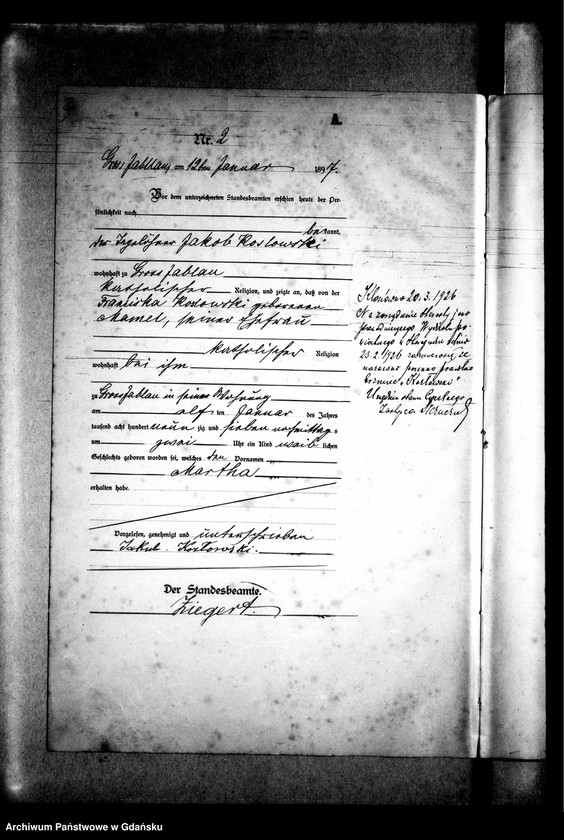 A.
Nr. 2
Gross Jablau am 12ten Januar 1897.
Vor dem unterzeichneten Standesbeamten erschien heute der Per-
sönlichkeit nach
bekannt,
der Tagelöhner Jakob Koslowski
wohnhaft zu Gross Jablau
katholischer Religion, und zeigte an, daß von der
Franziska Koslowski geborenen
Mamel, seiner Ehefrau
katholischer Religion
wohnhaft bei ihm
zu Gross Jablau in seiner Wohnung
am elf ten Januar des Jahres
tausend acht hundert neun zig und sieben vormittags
um zwei Uhr ein Kind weib lichen
Geschlechts geboren worden sei, welches den Vornamen
Martha
erhalten habe.
Vorgelesen, genehmigt und unterschrieben
Jakub Kozłowski.
Der Standesbeamte.
Ziegert.
20.3.1926
Na zarządzenie
Wydziału
w
23.2.1926 że
nazwisko
brzmieć "Kozłowski"
Urzędnik stanu Cywilnego
Archiwum Państwowe w Gdańsku